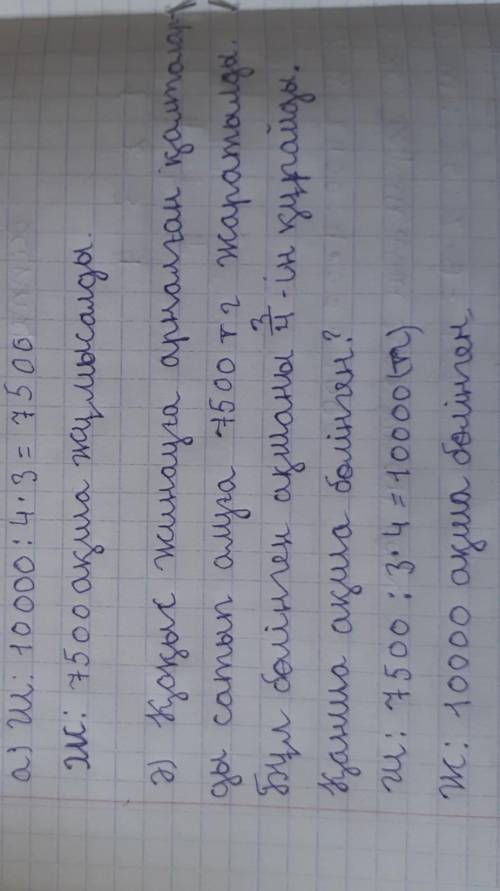 а) Ш: 10000 : 4 · 3 = 7500
Ж: 7500 ақша жұмысалды.
ә) Қоқыс жинауға арналған қалталар-
ды сатып алуға 7500 тг жаратылды.
Бұл бөлінген ақшаны 3/4 - ін құрайды.
Қанша ақша бөлінген?
Ш: 7500 : 3 · 4 = 10000 (тг)
Ж: 10000 ақша бөлінген